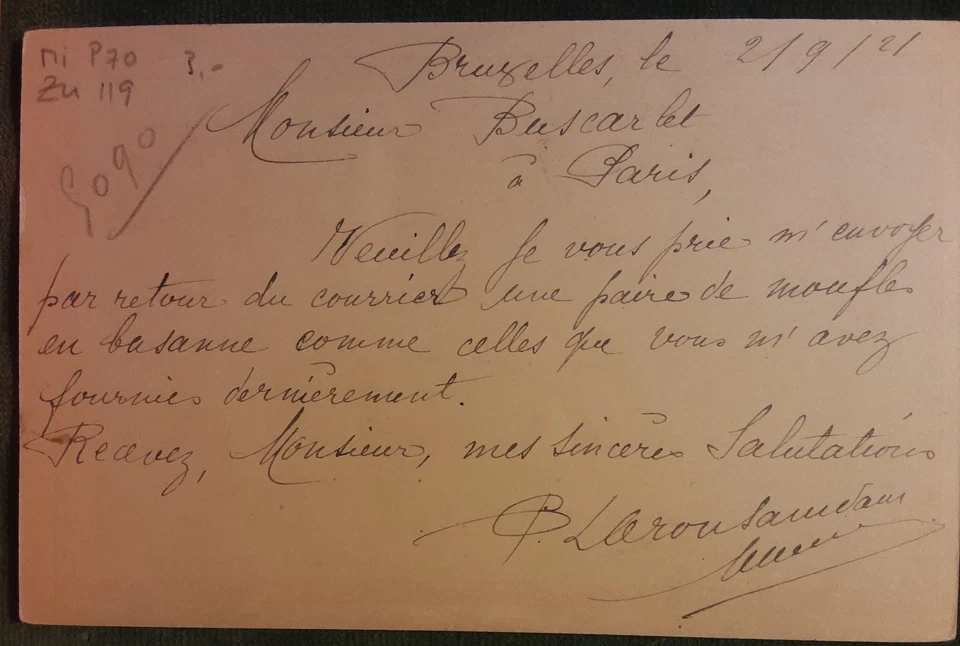 Mi P70 3,-
Zu 119
Bruxelles, le 2/9/21
Monsieur Buscarlet
à Paris,
Veuillez Je vous prie m'envoyer
par retour du courrier une paire de moufles
en basanne comme celles que vous m'avez
fournies dernièrement.
Recevez, Monsieur, mes sincères Salutations
P.